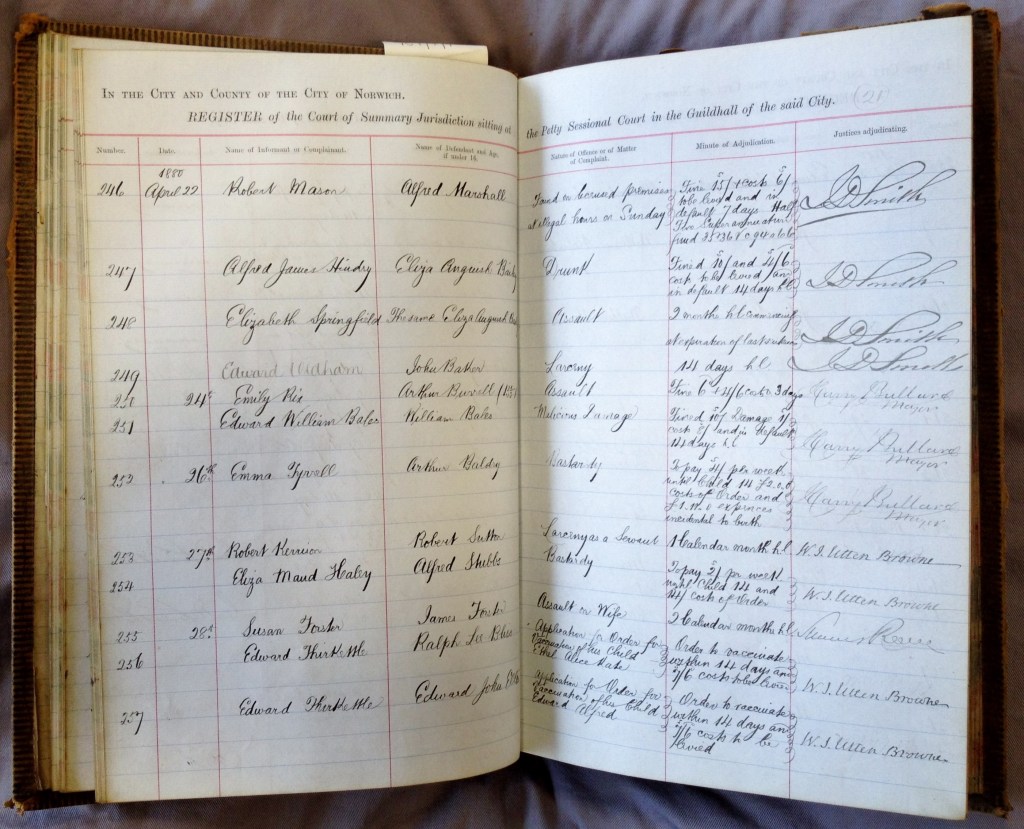 IN THE CITY AND COUNTY OF THE CITY OF NORWICH.
REGISTER of the Court of Summary Jurisdiction sitting at the Petty Sessional Court in the Guildhall of the said City.
Number. Date. Name of Informant or Complainant. Name of Defendant and Age, if under 16. Nature of Offence or of Matter of Complaint. Minute of Adjudication. Justices adjudicating.
1880
246 April 22 Robert Mason Alfred Marshall Found on licensed premises Fine 15/ + costs 6/ J D Smith
at illegal hours on Sunday to be levied and in
default 7 days Half
Fine Superannuation
fund
247 Alfred James Hindry Eliza Anguish Drunk Fined 10/ and 4/6 J D Smith
cost to be levied
in default 14 days hl
248 Elizabeth Springfield The same Eliza Anguish Assault 2 months hl commencing J D Smith
at expiration of last
249 Edward Widham John Baker Larceny 14 days hl J D Smith
24th Emily Rix Arthur Assault Fine 6/ + 4/6 costs 3 days Harry Bullard
Mayor
251 Edward William Bales William Bales Malicious Damage Fined 10/ Damage Harry Bullard
cost and in default Mayor
14 days hl
252 26th Emma Tyrrell Arthur Baldry Bastardy To pay per week Harry Bullard
until Child 14 £2.0.0 Mayor
costs of Order and
expences
incidental to birth
253 27th Robert Kerrison Robert Sutton Larceny as a Servant 1 Calendar month hl W. J. Utten Browne
254 Eliza Maud Haley Alfred Stubbs Bastardy To pay 2/ pr week W. J. Utten Browne
until Child 14 and
14/ costs of Order
255 28th Susan Forster James Forster Assault on Wife 2 Calendar months hl
256 Edward Thirkettle Ralph Lee Application for Order for Order to vaccinate W. J. Utten Browne
vaccination of his Child within 14 days and
Ethel Alice Kate 7/6 costs to be levied
257 Edward Thirkettle Edward John Application for Order for Order to vaccinate W. J. Utten Browne
Vaccination of his Child within 14 days and
Edward Alfred 7/6 costs to be
levied